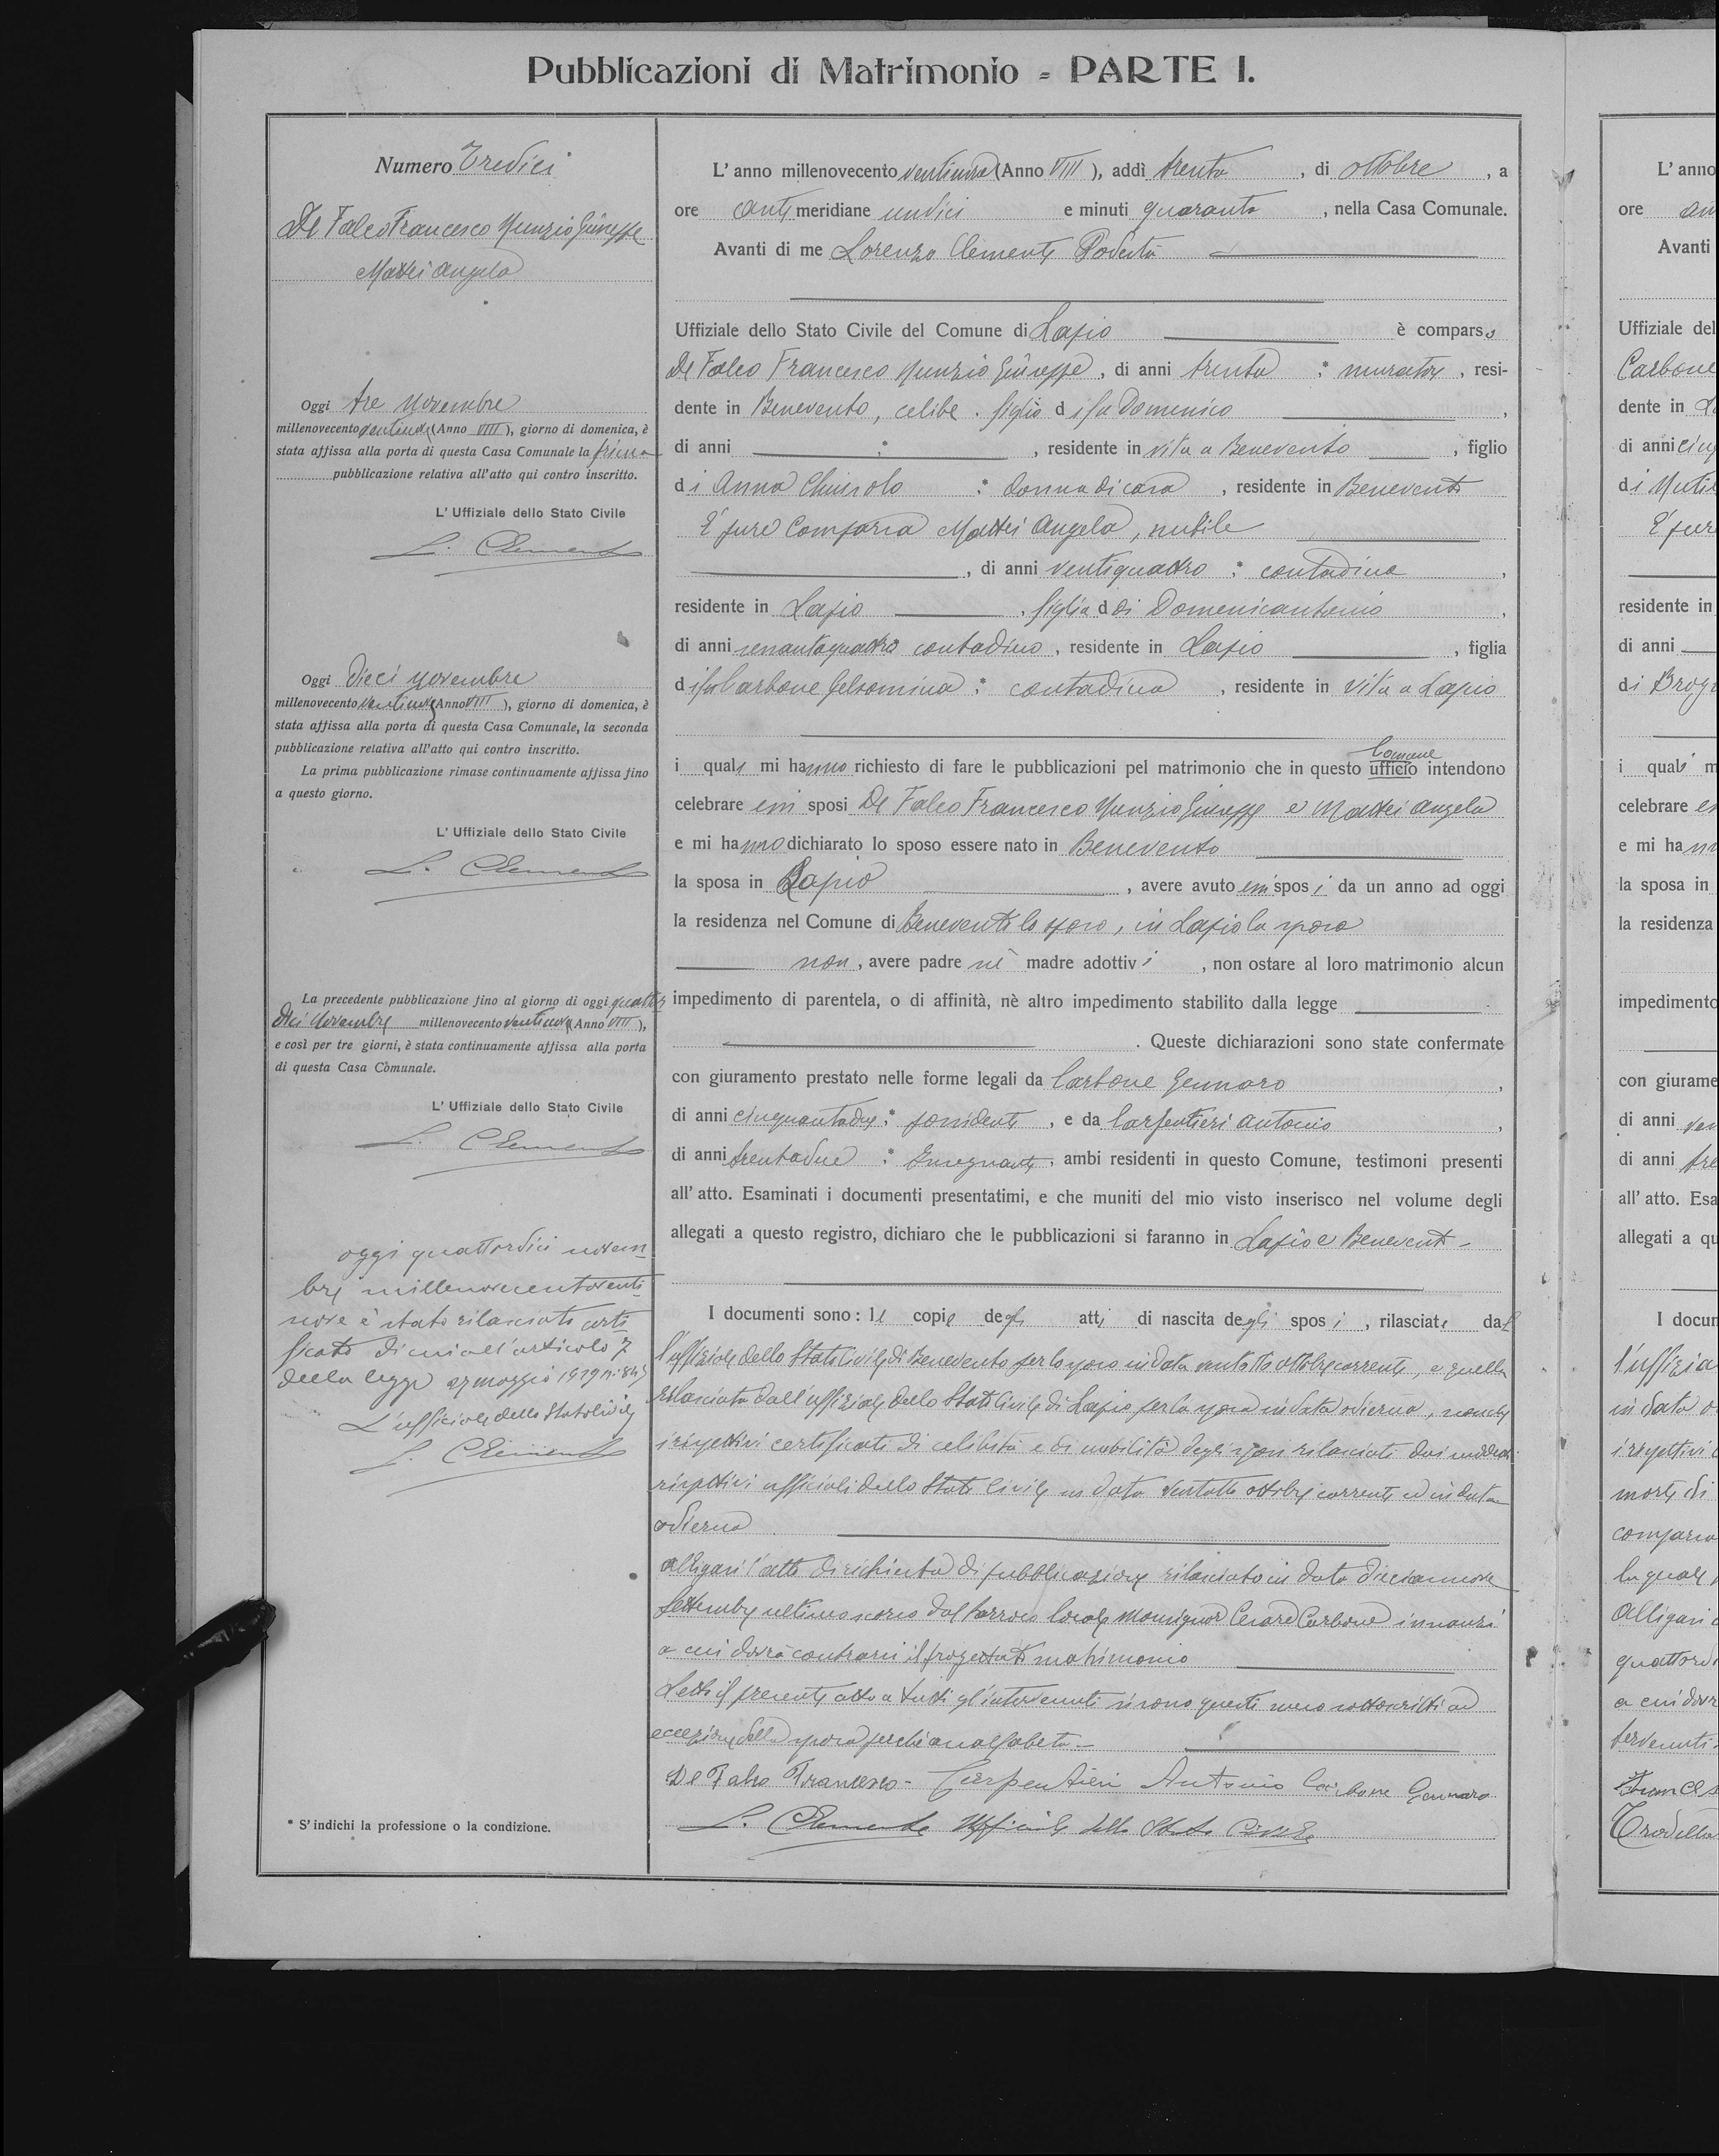 Pubblicazioni di Matrimonio - PARTE I.
Numero Tredici
De Falco Francesco Nunzio Giuseppe
Mattei Angela
Oggi tre novembre
millenovecento ventinove (Anno VIII), giorno di domenica, è
stata affissa alla porta di questa Casa Comunale la prima
pubblicazione relativa all'atto qui contro inscritto.
L'Uffiziale dello Stato Civile
L. Clemente
Oggi dieci novembre
millenovecento ventinove (Anno VIII), giorno di domenica, è
stata affissa alla porta di questa Casa Comunale, la seconda
pubblicazione relativa all'atto qui contro inscritto.
La prima pubblicazione rimase continuamente affissa fino
a questo giorno.
L'Uffiziale dello Stato Civile
L. Clemente
La precedente pubblicazione fino al giorno di oggi quattor
dici novembre millenovecento ventinove (Anno VIII),
e così per tre giorni, è stata continuamente affissa alla porta
di questa Casa Comunale.
L'Uffiziale dello Stato Civile
L. Clemente
oggi quattordici novem
bre millenovecentoventi
nove è stato rilasciato certi
ficato di cui all'articolo 7
della legge 27 maggio 1929 n. 847
L'ufficiale dello Stato Civile
L. Clemente
* S'indichi la professione o la condizione.
L'anno millenovecento ventinove (Anno VIII), addì trenta, di ottobre, a
ore anti meridiane undici e minuti quaranta, nella Casa Comunale.
Avanti di me Lorenzo Clemente Podestà
Uffiziale dello Stato Civile del Comune di Lapio è comparso
De Falco Francesco Nunzio Giuseppe, di anni trenta * muratore, resi-
dente in Benevento, celibe, figlio di fu Domenico,
di anni *, residente in vita a Benevento, figlio
di Anna Chiusolo * donna di casa, residente in Benevento
È pure comparsa Mattei Angela, nubile
, di anni ventiquattro * contadina,
residente in Lapio, figlia d di Domenicantonio,
di anni sessantaquattro contadino, residente in Lapio, figlia
di fu Carbone Gelsomina * contadina, residente in vita a Lapio
i quali mi hanno richiesto di fare le pubblicazioni pel matrimonio che in questo ufficio Comune intendono
celebrare essi sposi De Falco Francesco Nunzio Giuseppe e Mattei Angela
e mi hanno dichiarato lo sposo essere nato in Benevento
la sposa in Lapio, avere avuto essi sposi da un anno ad oggi
la residenza nel Comune di Benevento lo sposo, in Lapio la sposa
non, avere padre nè madre adottivi, non ostare al loro matrimonio alcun
impedimento di parentela, o di affinità, nè altro impedimento stabilito dalla legge
. Queste dichiarazioni sono state confermate
con giuramento prestato nelle forme legali da Carbone Gennaro,
di anni cinquantadue * possidente, e da Carpentieri Antonio,
di anni trentadue * Insegnante, ambi residenti in questo Comune, testimoni presenti
all'atto. Esaminati i documenti presentatimi, e che muniti del mio visto inserisco nel volume degli
allegati a questo registro, dichiaro che le pubblicazioni si faranno in Lapio e Benevento
I documenti sono: le copie degli atti di nascita degli sposi, rilasciate dal
l'uffiziale dello Stato Civile di Benevento per lo sposo in data ventotto ottobre corrente, e quella
rilasciata dall'uffiziale dello Stato Civile di Lapio per la sposa in data odierna, nonchè
i rispettivi certificati di celibità e di nubilità degli sposi rilasciati dai suddetti
rispettivi ufficiali dello Stato Civile in data ventotto ottobre corrente ed in data
odierna
Alligasi l'atto di richiesta di pubblicazione rilasciato in data diciannove
settembre ultimo scorso dal Parroco locale Monsignor Cesare Carbone innanzi
a cui dovrà contrarsi il progettato matrimonio
Letto il presente atto a tutti gl'intervenuti si sono questi meco sottoscritti ad
eccezione della sposa perchè analfabeta
De Falco Francesco - Carpentieri Antonio Carbone Gennaro
L. Clemente Ufficiale dello Stato Civile
L'anno
ore an
Avanti
Uffiziale del
Carbone
dente in
di anni cinq
di
È pure
residente in
di anni
di
i quali m
celebrare es
e mi han
la sposa in
la residenza
impedimento
con giurame
di anni ven
di anni tre
all'atto. Esa
allegati a qu
I docum
l'uffizia
in data o
i rispettivi c
morte di
comparsa
la quale
Alligasi
quattordi
a cui dovr
tervenuti
Frances